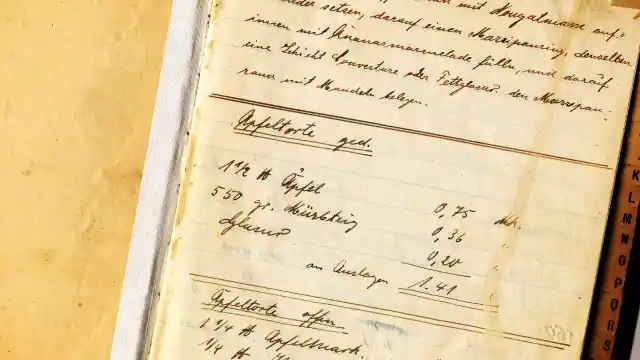 setzen, darauf einen Marzipanring, denselben
innen mit Ananasmarmelade füllen, und darauf
eine Schicht Couverture oder Fettglasur. den Marzipan-
rand mit Mandeln belegen.
Äpfeltorte ged.
1 1/2 ℔ Äpfel 0,75 Mk.
550 gr. Mürbteig 0,36 "
Glasur 0,20 "
an Auslagen 1.41 "
Äpfeltorte offen
1/4 ℔ Apfelmark.
1/4 ℔
K
L
M
N
O
P
O
R
S